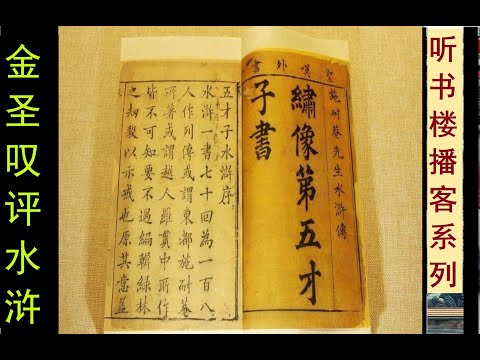 金圣叹评水浒
聖嘆外書
施耐菴先生水滸傳
繡像第五才
子書
五才子水滸序
水滸一書七十回為一百八
人作列傳或謂東都施耐菴
所著或謂越人羅貫中所作
皆不可知要不過編輯綠林
之刼殺以示戒也原其意蓋
听书楼播客系列